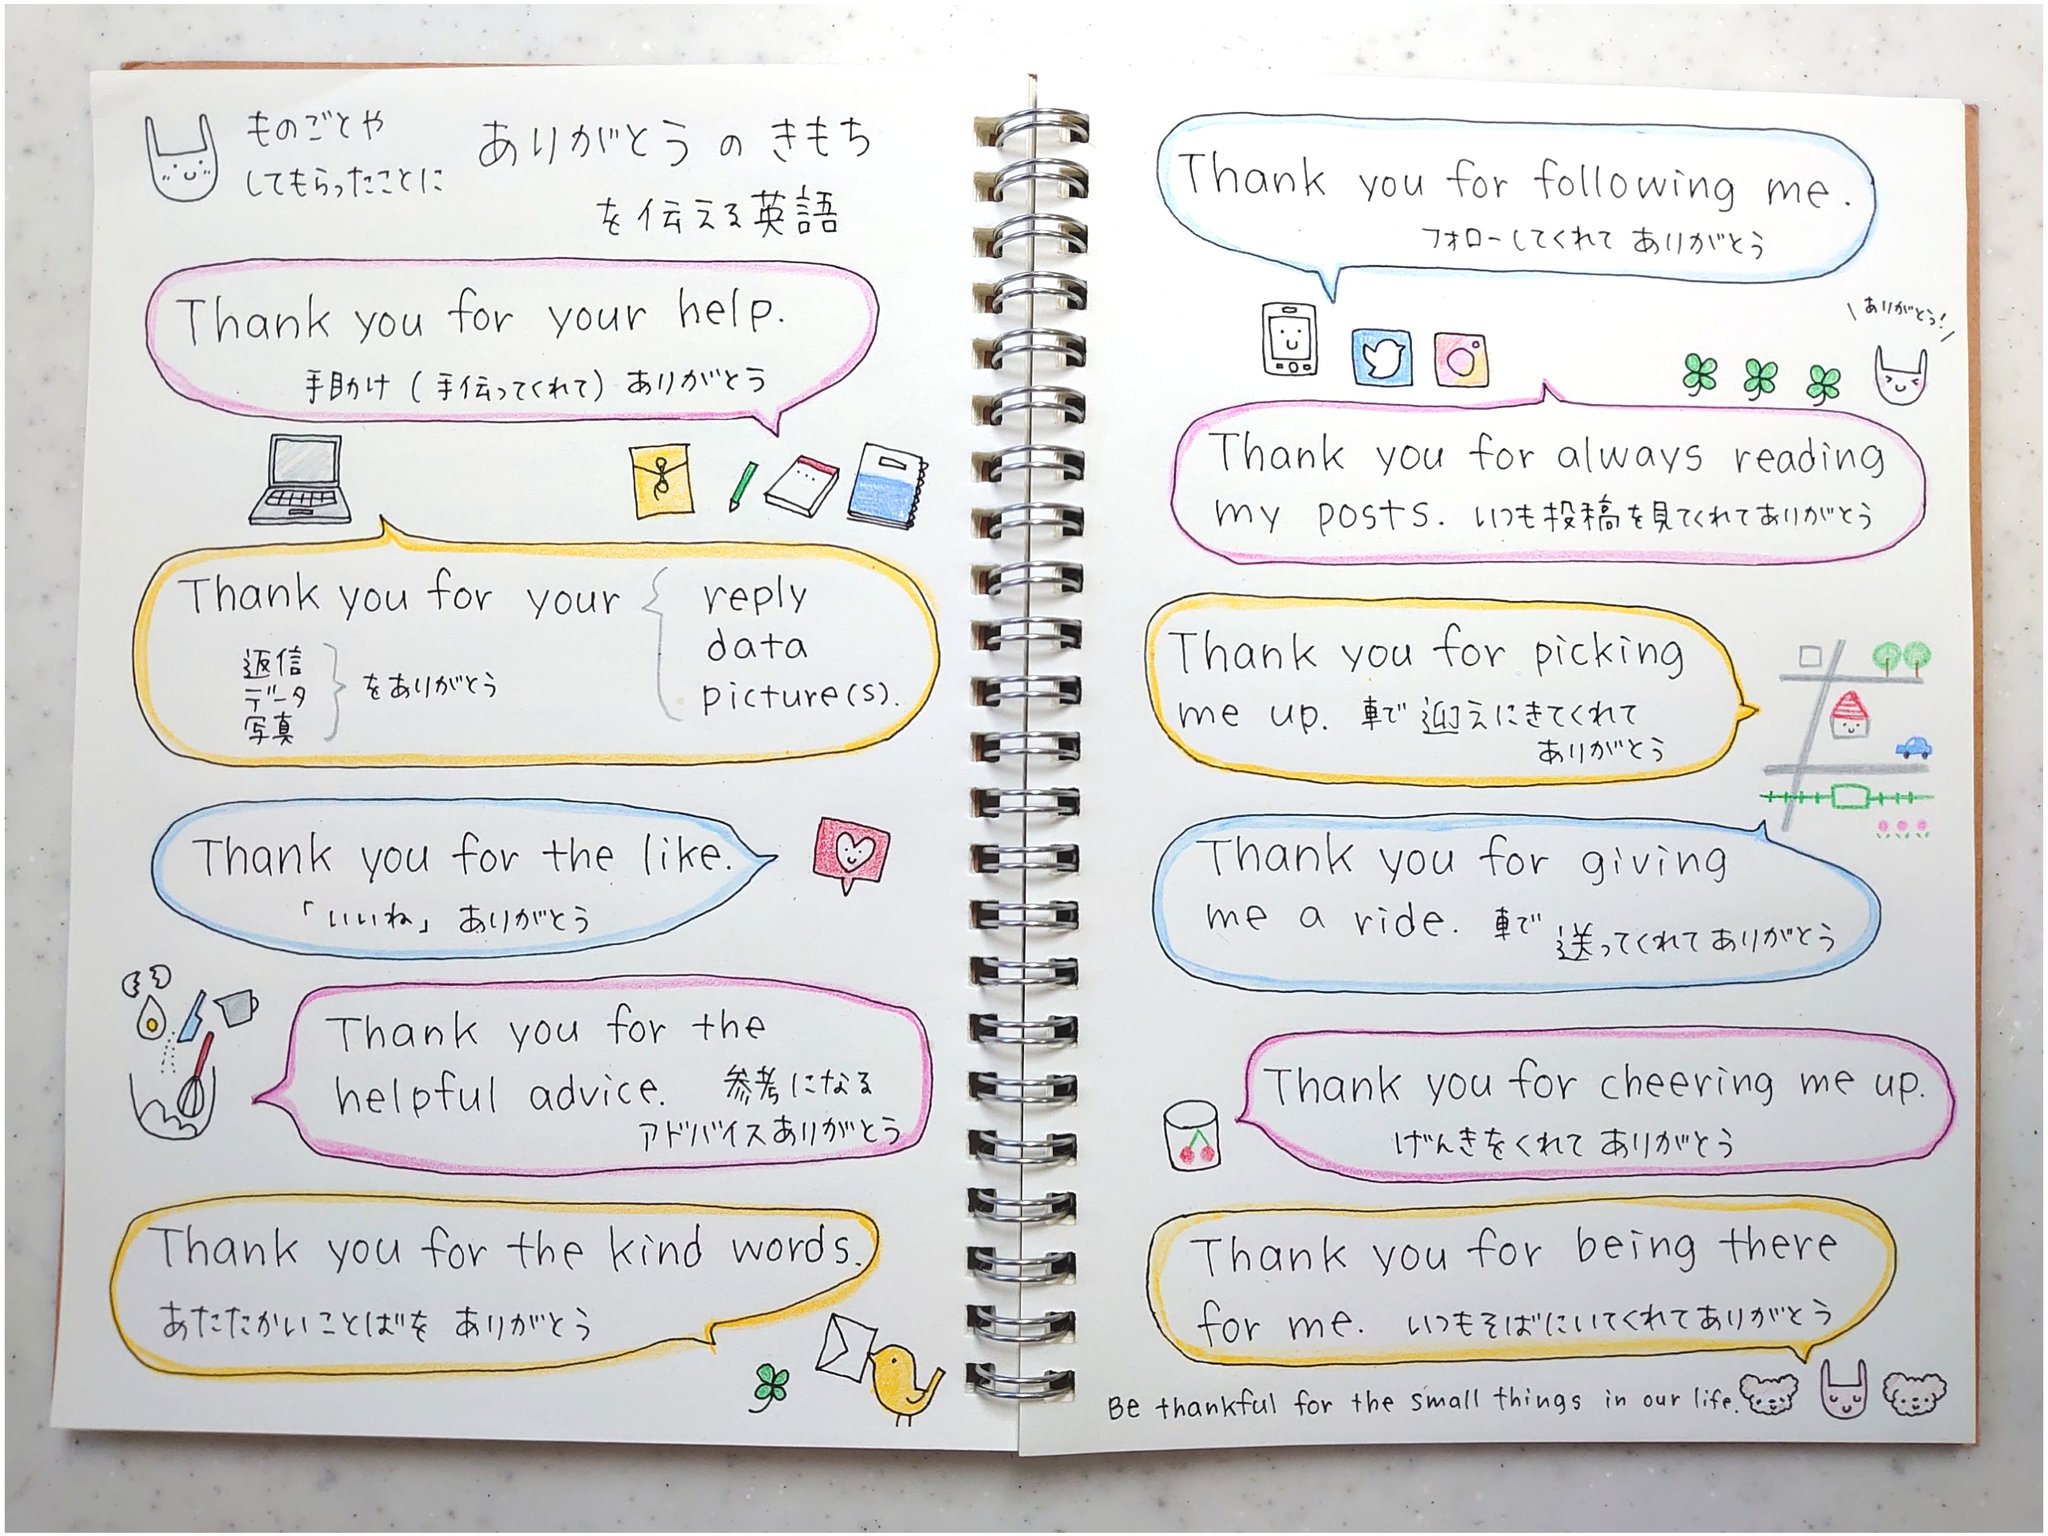 ものごとや
してもらったことに
ありがとうのきもち
を伝える英語
Thank you for your help.
手助け(手伝ってくれて)ありがとう
Thank you for your
reply
data
picture(s).
返信
データ
写真
をありがとう
Thank you for the like.
「いいね」ありがとう
Thank you for the
helpful advice. 参考になる
アドバイスありがとう
Thank you for the kind words.
あたたかいことばを ありがとう
Thank you for following me.
フォローしてくれて ありがとう
ありがとう!
Thank you for always reading
my posts. いつも投稿を見てくれてありがとう
Thank you for picking
me up. 車で迎えにきてくれて
ありがとう
Thank you for giving
me a ride. 車で送ってくれてありがとう
Thank you for cheering me up.
げんきをくれて ありがとう
Thank you for being there
for me. いつもそばにいてくれてありがとう
Be thankful for the small things in our life.